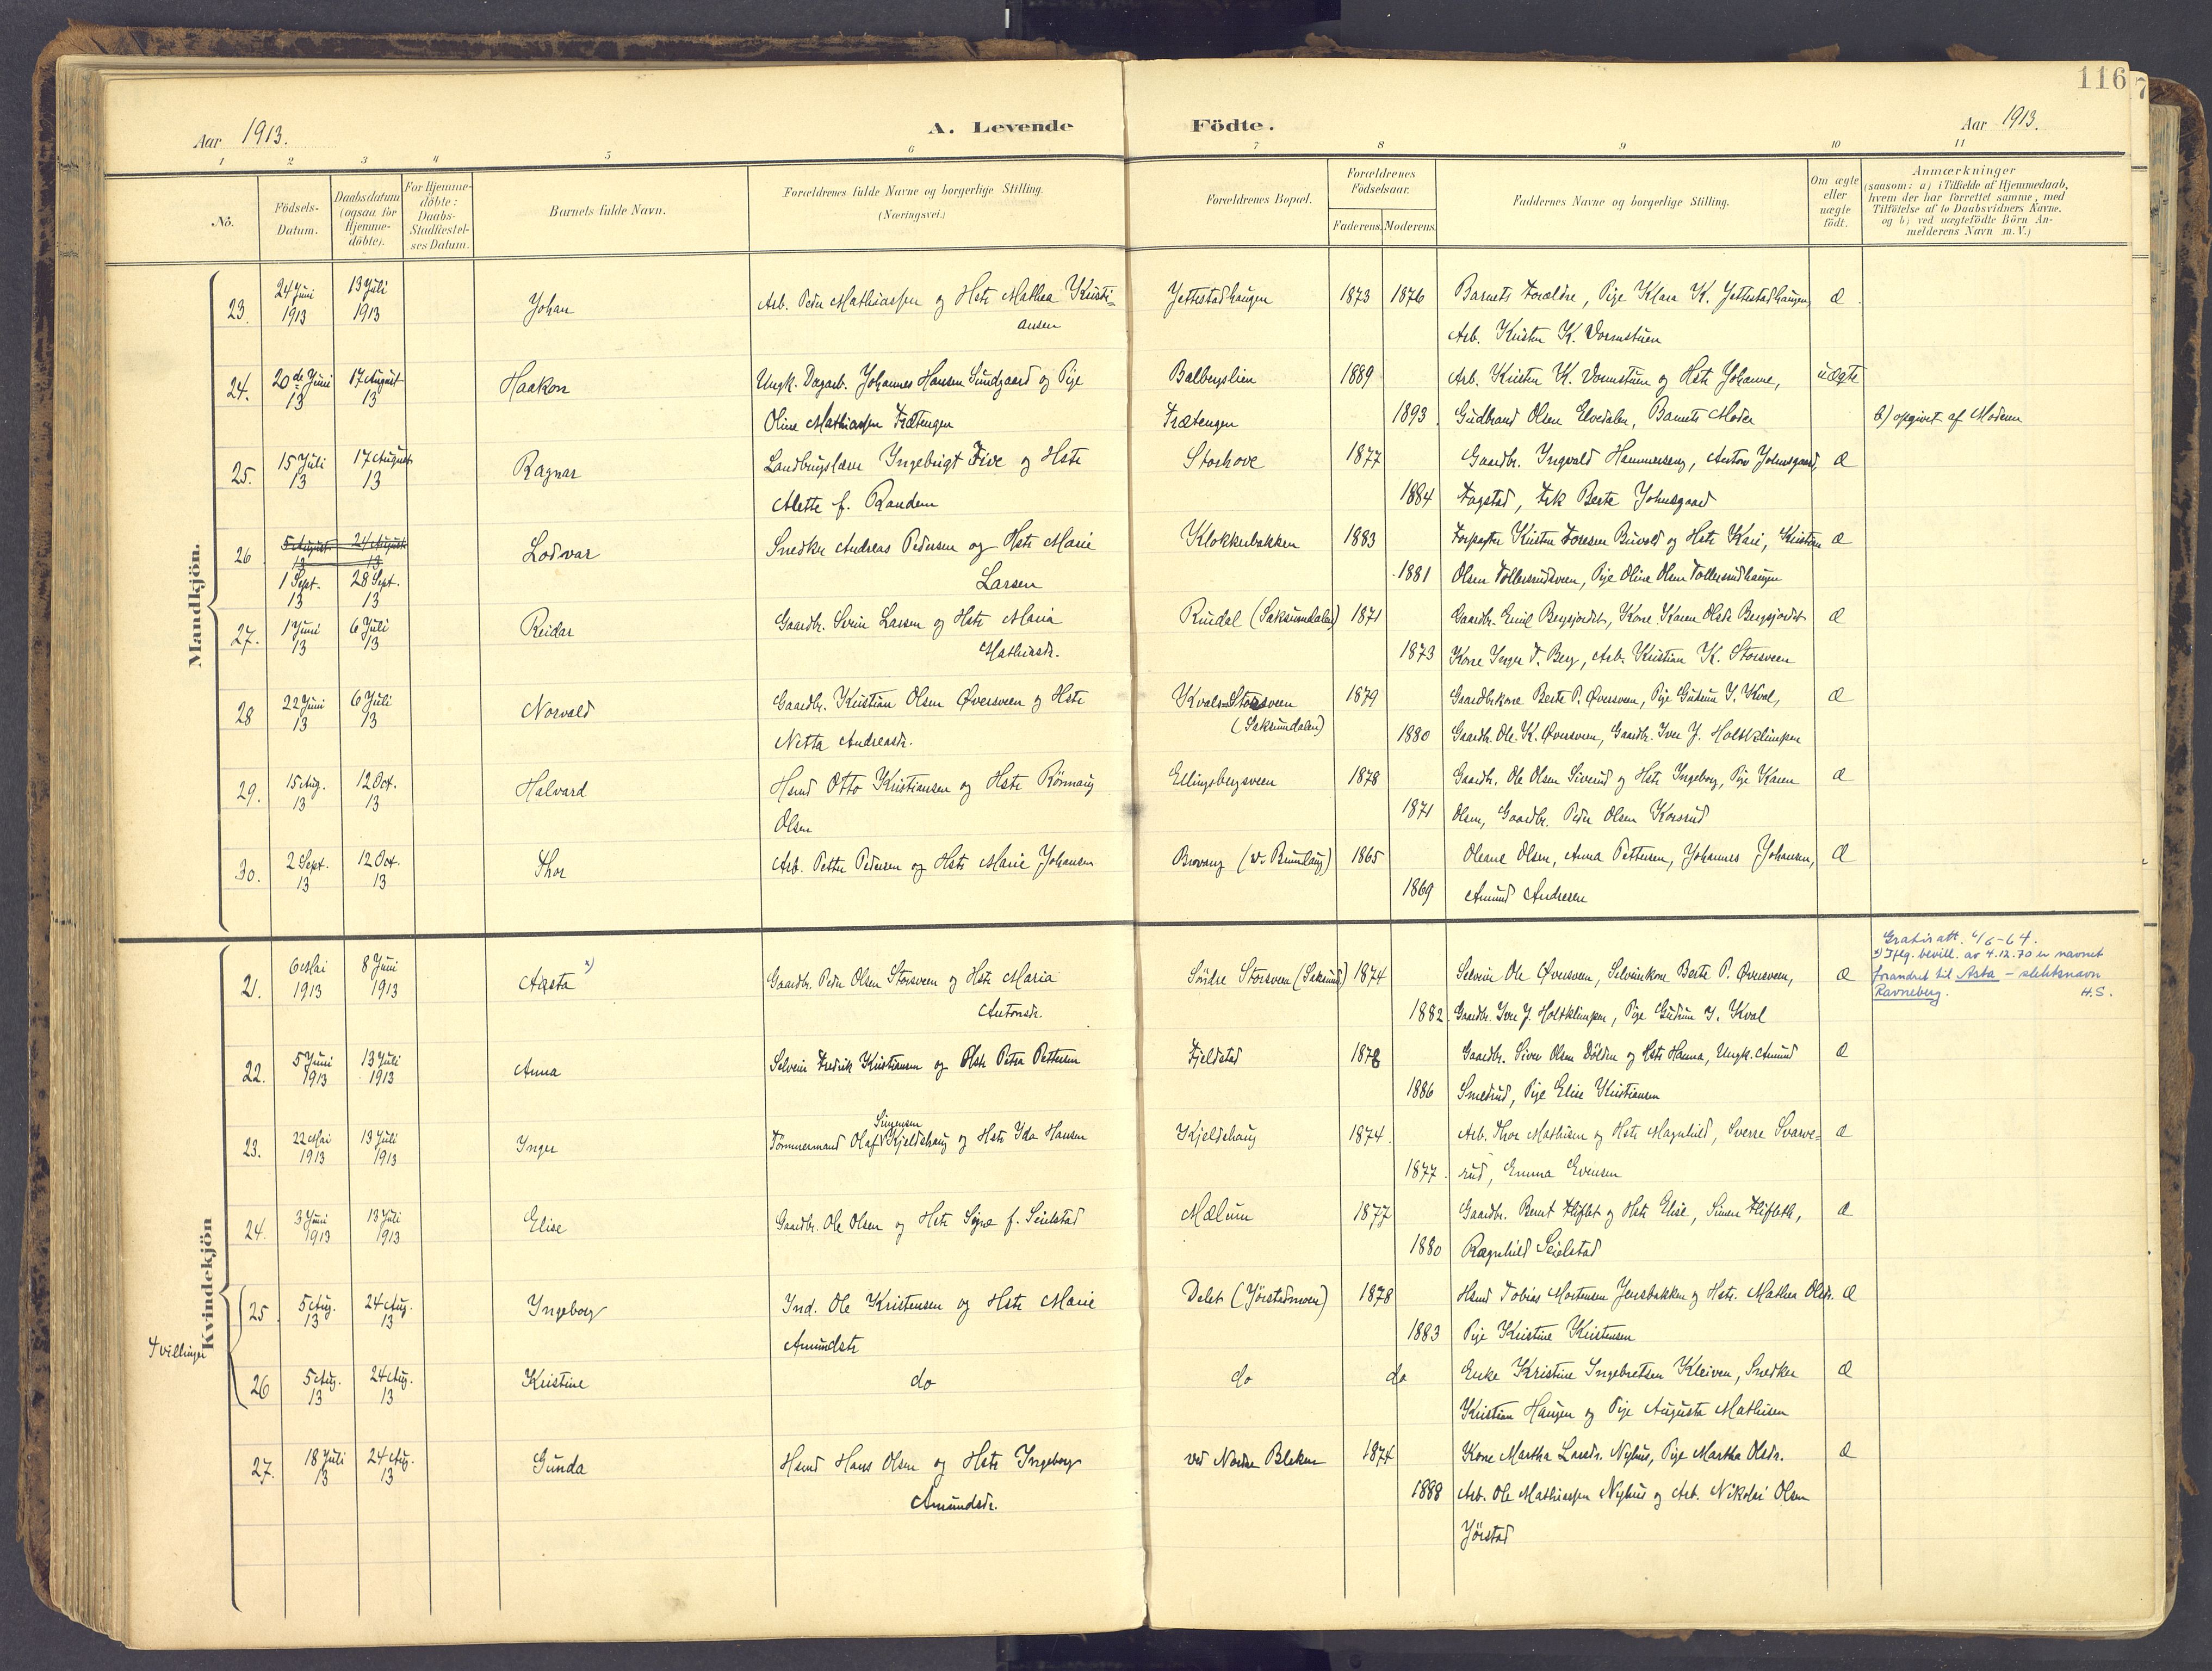 116
Aar 1913.
A. Levende Födte.
Aar 1913.
1 2 3 4 5 6 7 8 9 10 11
No.
Födsels-Datum.
Daabsdatum (ogsaa for Hjemme-döbte).
For Hjemme-döbte: Daabs-Stadfæstel-ses Datum.
Barnets fulde Navn.
Forældrenes fulde Navne og borgerlige Stilling. (Næringsvei.)
Forældrenes Bopæl.
Forældrenes Födselsaar.
Faderens. Moderens.
Faddernes Navne og borgerlige Stilling.
Om ægte eller uægte födt.
Anmærkninger
(saasom: a) i Tilfælde af Hjemmedaab,
hvem der har forrettet samme, med
Tilföielse af to Daabsvidners Navne.
og b) ved uægtefödte Börn An-
melderens Navn m.V.)
Mandkjön.
23. 24 Juni 1913 13 Juli 1913 Johan Arb. Peder Mathiassen og Hstr Mathea Kristi- Jettestadhaugen 1873 1876 Barnets Forældre, Pige Klara K. Jettestadhaugen, Æ
ansen Arb. Kristen K. Dormstuen
24. 20de Juni 13 17 August 13 Haakon Ungk. Dagarb. Johannes Hansen Sundgaard og Pige Balbergslien 1889 Arb. Kristen K. Dormstuen og Hstr Johanne, uægte
Oline Mathiassen Frætengen Frætengen 1893 Gudbrand Olsen Elvedalen, Barnets Moder b) opgivet af Moderen
25. 15 Juli 13 17 August 13 Ragnar Landbrugslærer Ingebrigt Five og Hstr Storhove 1877 Gaardbr. Ingvald Hammerseng, Anton Johnsgaard, Æ
Alette f. Randem 1884 Fagstad, Frk Berte Johnsgaard
26 5 August 13 24 August 13 Lodvar Snedker Andreas Pedersen og Hstr Marie Klokkerbakken 1883 Forpagter Kristen Toresen Buvold og Hstr Kari, Kristian Æ
1 Sept. 13 28 Sept. 13 Larsen 1881 Olsen Tollersrudsveen, Pige Oline Olsen Tollersrudhaugen
27. 1 Juni 13 6 Juli 13 Reidar Gaardbr. Svein Larsen og Hstr Maria Rindal (Saksumdalen) 1871 Gaardbr. Emil Bergsjordet, Kone Karen Olsdr Bergsjordet Æ
Mathiasdr. 1873 Kone Inger T. Berg, Arb. Kristian K. Storsveen
28 22 Juni 13 6 Juli 13 Norvald Gaardbr. Kristian Olsen Øversveen og Hstr Kvals-Storsveen 1879 Gaardbrkone Berte P. Øversveen, Pige Gudrun I. Kval, Æ
Netta Andreasdr. (Saksumdalen) 1880 Gaardbr. Ole K. Øversveen, Gaardbr. Iver J. Holtklimpen
29. 15 Aug. 13 12 Oct. 13 Halvard Hsmd Otto Kristiansen og Hstr Rönnaug Ellingsbergsveen 1878 Gaardbr. Ole Olsen Siverud og Hstr Ingeborg, Pige Karen Æ
Olsen 1871 Olsen, Gaardbr. Peder Olsen Korsrud
30. 2 Sept. 13 12 Oct. 13 Thor Arb. Petter Pedersen og Hstr Marie Johansen Brovang (v. Brunlaug) 1865 Oleane Olsen, Anna Pettersen, Johannes Johansen, Æ
1869 Amund Andresen
Kvindekjön
21. 6 Mai 1913 8 Juni 1913 Aasta x) Gaardbr. Peder Olsen Storsveen og Hstr Maria Söndre Storsveen (Saksumd.) 1874 Selveier Ole Øversveen, Selveierkone Berte P. Øversveen, Æ
Antonsdr. 1882 Gaardbr. Iver J. Holtklimpen, Pige Gudrun I. Kval
Gratis att. 6/6-64.
x) Iflg. bevill. av 4.12.70 er navnet
forandret til Asta – slektsnavn
Ravneberg. H.S.
22. 5 Juni 1913 13 Juli 1913 Anna Selveier Fredrik Kristiansen og Hstr Petra Pettersen Fjeldstad 1878 Gaardbr. Siver Olsen Dölden og Hstr Hanna, Ungk. Amund Æ
1886 Smedrud, Pige Elise Kristiansen
23. 22 Mai 1913 13 Juli 1913 Inger Tömmermand Olaf Simensen Kjeldshaug og Hstr Ida Hansen Kjeldshaug 1874 Arb. Thor Mathisen og Hstr Magnhild, Sverre Svarve- Æ
1877 rud, Emma Evensen
24. 3 Juni 1913 13 Juli 1913 Elise Gaardbr. Ole Olsen og Hstr Signe f. Seielstad Mælum 1877 Gaardbr. Bernt Fliflet og Hstr Elise, Simen Fliflet, Æ
1880 Ragnhild Seielstad
Tvillinger
25 5 Aug. 13 24 Aug. 13 Ingeborg Ind. Ole Kristensen og Hstr Marie Delet (Jörstadmoen) 1878 Hsmd Tobias Mortensen Jensbakken og Hstr. Mathea Olsdr. Æ
Amundsdr 1883 Pige Kristine Kristensen
26 5 Aug. 13 24 Aug. 13 Kristine do do do Enke Kristine Ingebretsen Kleiven, Snedker Æ
Kristian Haugen og Pige Augusta Mathisen
27. 18 Juli 13 24 Aug. 13 Gunda Hsmd Hans Olsen og Hstr Ingeborg ved Nordre Bleken 1874 Kone Martha Larsdr. Nyhus, Pige Martha Olsdr. Æ
Amundsdr. 1888 Arb. Ole Mathiassen Nyhus og Arb. Nikolai Olsen
Jörstad